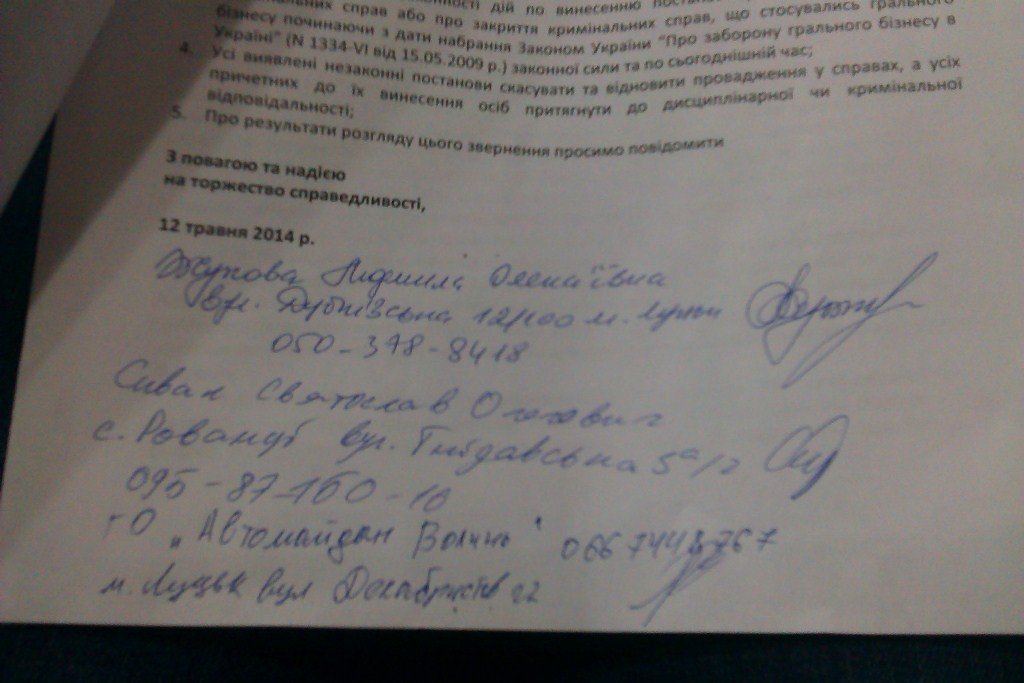 дій по винесенню
справ або про закриття кримінальних справ, що стосувались грального
бізнесу починаючи з дати набрання Законом України "Про заборону грального бізнесу в
Україні" (N 1334-VI від 15.05.2009 р.) законної сили та по сьогоднішній час;
4. Усі виявлені незаконні постанови скасувати та відновити провадження у справах, а усіх
причетних до їх винесення осіб притягнути до дисциплінарної чи кримінальної
відповідальності;
5. Про результати розгляду цього звернення просимо повідомити
З повагою та надією
на торжество справедливості,
12 травня 2014 р.
Людмила
вул. Дубнівська м.
050-378-8418
Святослав
с. вул. Гнідавська 5а/2
095-87-160-10
ГО "Автомайдан Волинь"
м. Луцьк вул Декабристів 22